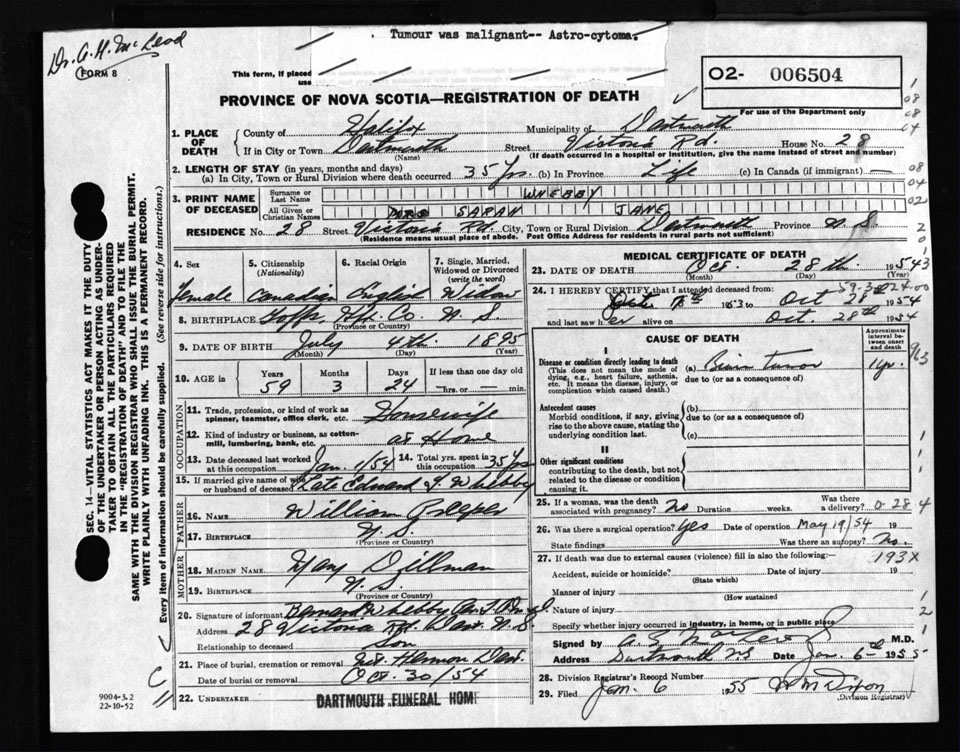 Tumour was malignant-- Astro-cytoma.
Dr. A. H. McLeod
FORM 8
This form, if placed
use
O2- 006504
PROVINCE OF NOVA SCOTIA—REGISTRATION OF DEATH
For use of the Department only
1. PLACE OF DEATH
County of Halifax Municipality of Dartmouth
If in City or Town Dartmouth Street Victoria Rd. House No. 28
(Name) (If death occurred in a hospital or institution, give the name instead of street and number)
2. LENGTH OF STAY (in years, months and days)
(a) In City, Town or Rural Division where death occurred 35 Yrs. (b) In Province Life (c) In Canada (if immigrant) —
3. PRINT NAME OF DECEASED
Surname or Last Name WHEBBY
All Given or Christian Names SARAH JANE
RESIDENCE No. 28 Street Victoria Rd. City, Town or Rural Division Dartmouth Province N.S.
(Residence means usual place of abode. Post Office Address for residents in rural parts not sufficient)
4. Sex
Female
5. Citizenship
(Nationality)
Canadian
6. Racial Origin
English
7. Single, Married,
Widowed or Divorced
(write the word)
Widow
8. BIRTHPLACE Goffs Hfx. Co. N.S.
(Province or Country)
9. DATE OF BIRTH July 4th 1895
(Month) (Day) (Year)
10. AGE in Years 59 Months 3 Days 24 If less than one day
—hrs. or — min.
OCCUPATION
11. Trade, profession, or kind of work as
spinner, teamster, office clerk, etc. Housewife
12. Kind of industry or business, as cotton-
mill, lumbering, bank, etc. at Home
13. Date deceased last worked
at this occupation Jan. 1/54
14. Total yrs. spent in
this occupation 35 Yrs
15. If married give name of wife
or husband of deceased Late Edward J. Whebby
FATHER
16. Name William
17. Birthplace N.S.
(Province or Country)
MOTHER
18. Maiden Name Mary Dillman
19. Birthplace N.S.
(Province or Country)
20. Signature of informant Bernard Whebby
Address 28 Victoria Rd. Dart. N.S.
Relationship to deceased Son
21. Place of burial, cremation or removal Mt. Hermon Dart.
Date of burial or removal Oct. 30/54
22. UNDERTAKER DARTMOUTH FUNERAL HOME
9004-3.2
22-10-52
SEC. 14—VITAL STATISTICS ACT MAKES IT THE DUTY
OF THE UNDERTAKER OR PERSON ACTING AS UNDER-
TAKER TO OBTAIN ALL THE PARTICULARS REQUIRED
IN THE "REGISTRATION OF DEATH" AND TO FILE THE
SAME WITH THE DIVISION REGISTRAR WHO SHALL ISSUE THE BURIAL PERMIT.
WRITE PLAINLY WITH UNFADING INK. THIS IS A PERMANENT RECORD.
Every item of information should be carefully supplied. (See reverse side for instructions.)
MEDICAL CERTIFICATE OF DEATH
23. DATE OF DEATH Oct. 28th 1954
(Month) (Day) (Year)
24. I HEREBY CERTIFY that I attended deceased from:
1953 to Oct 28 1954
and last saw her alive on Oct. 28th 1954
CAUSE OF DEATH
Approximate interval between onset and death
I
Disease or condition directly leading to death
(This does not mean the mode of
dying, e.g., heart failure, asthenia,
etc. It means the disease, injury, or
complication which caused death.)
(a) Brain tumor 1 yr.
due to (or as a consequence of)
Antecedent causes
Morbid conditions, if any, giving
rise to the above cause, stating the
underlying condition last.
(b)
due to (or as a consequence of)
(c)
II
Other significant conditions
contributing to the death, but not
related to the disease or condition
causing it.
25. If a woman, was the death
associated with pregnancy? No Duration weeks. Was there
a delivery? 0-28 4
26. Was there a surgical operation? Yes Date of operation May 19/54 19
State findings Was there an autopsy? No.
27. If death was due to external causes (violence) fill in also the following:— 193X
Accident, suicide or homicide? Date of injury 19
(State which)
Manner of injury
(How sustained)
Nature of injury
Specify whether injury occurred in industry, in home, or in public place
Signed by M.D.
Address Dartmouth NS Date Jan. 6th 1955
28. Division Registrar's Record Number
29. Filed Jan. 6 1955 W M Dixon
(Division Registrar)